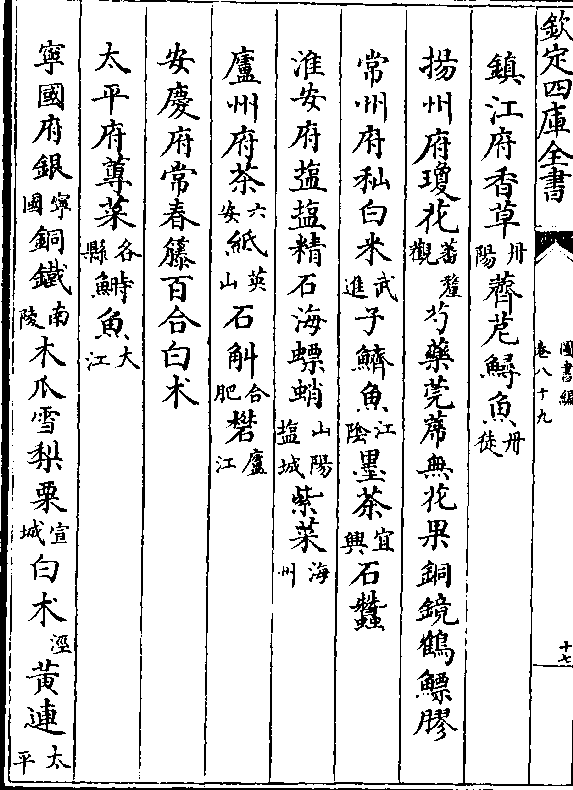 欽定四庫全書
圖書編
卷八十九
十七
鎮江府香草丹陽薺苨鱘魚丹徒
揚州府瓊花蕃釐觀芍藥莞蓆無花果銅鏡鶴鰾膠
常州府秈白米武進子鱭魚江陰墨茶宜興石蠶
淮安府塩塩精石海螵蛸山陽塩城紫菜海州
廬州府茶六安紙英山石斛合肥礬廬江
安慶府常春籐百合白术
太平府蓴菜各縣鰣魚大江
寧國府銀寧國銅鐵南陵木瓜雪梨栗宣城白术涇黃連太平